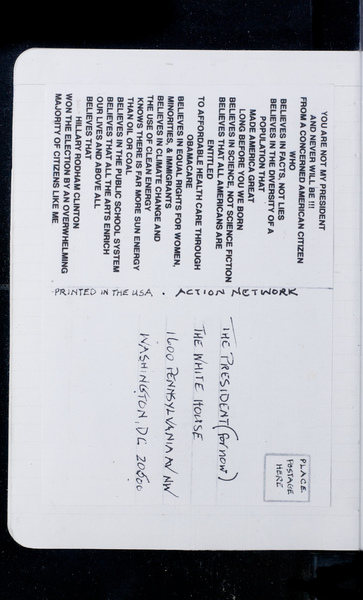 YOU ARE NOT MY PRESIDENT
AND NEVER WILL BE !!!
FROM A CONCERNED AMERICAN CITIZEN
WHO
BELIEVES IN FACTS, NOT LIES
BELIEVES IN THE DIVERSITY OF A
POPULATION THAT
MADE AMERICA GREAT
LONG BEFORE YOU WE BORN
BELIEVES IN SCIENCE, NOT SCIENCE FICTION
BELIEVES THAT ALL AMERICANS ARE
ENTITLED
TO AFFORDABLE HEALTH CARE THROUGH
OBAMACARE
BELIEVES IN EQUAL RIGHTS FOR WOMEN,
MINORITIES, & IMMIGRANTS
BELIEVES IN CLIMATE CHANGE AND
THE USE OF CLEAN ENERGY
KNOWS THERE IS FAR MORE SUN ENERGY
THAN OIL OR COAL
BELIEVES IN THE PUBLIC SCHOOL SYSTEM
BELIEVES THAT ALL THE ARTS ENRICH
OUR LIVES AND ABOVE ALL
BELIEVES THAT
HILLARY RODHAM CLINTON
WON THE ELECTION BY AN OVERWHELMING
MAJORITY OF CITIZENS LIKE ME
PRINTED IN THE USA . ACTION NETWORK
PLACE
POSTAGE
HERE
THE PRESIDENT (for now)
THE WHITE HOUSE
1600 PENNSYLVANIA AV NW
WASHINGTON, DC 20500